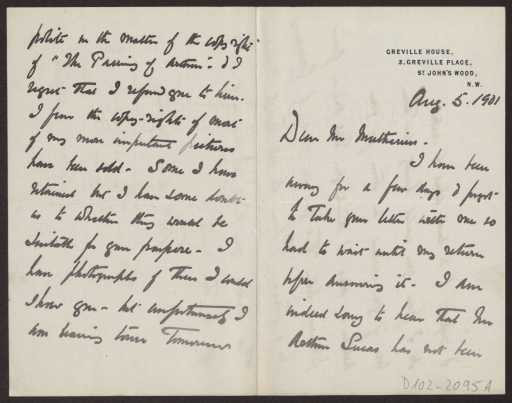 GREVILLE HOUSE,
3, GREVILLE PLACE,
ST JOHN'S WOOD,
N.W.
Aug. 5. 1901
Dear Mr Muthesius.
I have been
away for a few days & forgot
to take your letter with me so
had to wait until my return
before answering it - I am
indeed sorry to hear that Mr
Arthur Lucas has not been
polite in the matter of the copyright
of "The Passing of Arthur". & I
regret that I referred you to him.
I fear the copy-rights of most
of my more important pictures
have been sold - Some I have
retained but I have some doubt
as to whether they would be
suitable for your purpose - I
have photographs of these I could
show you - but unfortunately I
am leaving town Tomorrow
D102-2095A